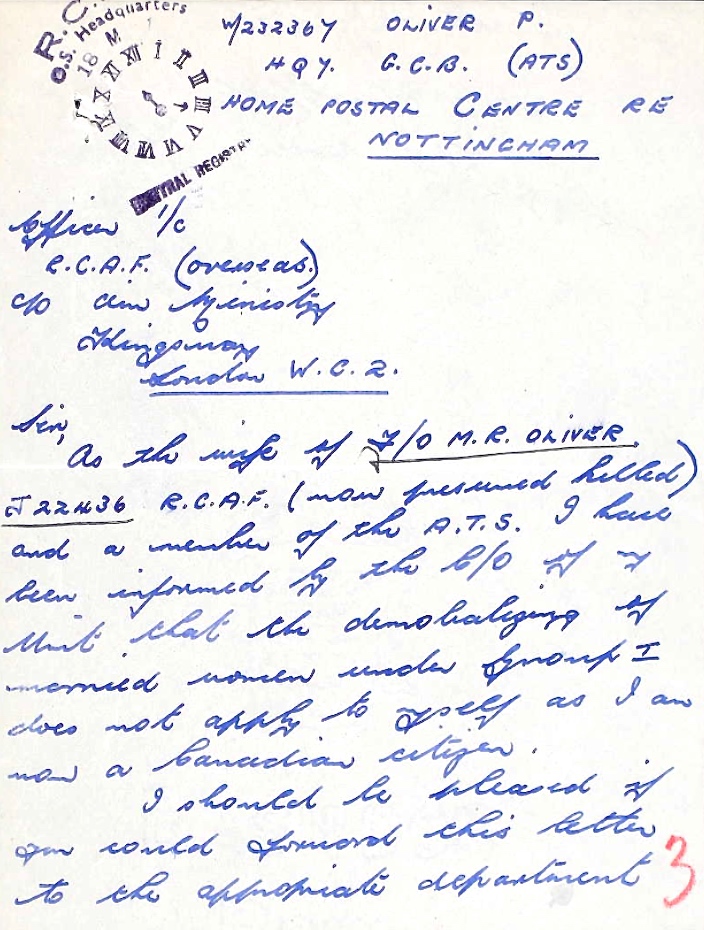 R.C.
O.S. Headquarters
18 M
CENTRAL REGISTR
W/232367 OLIVER P.
HQ Y. G.C.B. (ATS)
HOME POSTAL CENTRE RE
NOTTINGHAM
Officer i/c
R.C.A.F. (overseas.)
c/o Air Ministry
Kingsway
London W.C.2.
Sir,
As the wife of F/O M.R. OLIVER.
J22436 R.C.A.F. (now presumed killed)
and a member of the A.T.S. I have
been informed by the C/O of my
Unit that the demobalizing of
married women under Group I
does not apply to myself as I am
now a Canadian citizen.
I should be pleased if
you could forward this letter
to the appropiate department
3